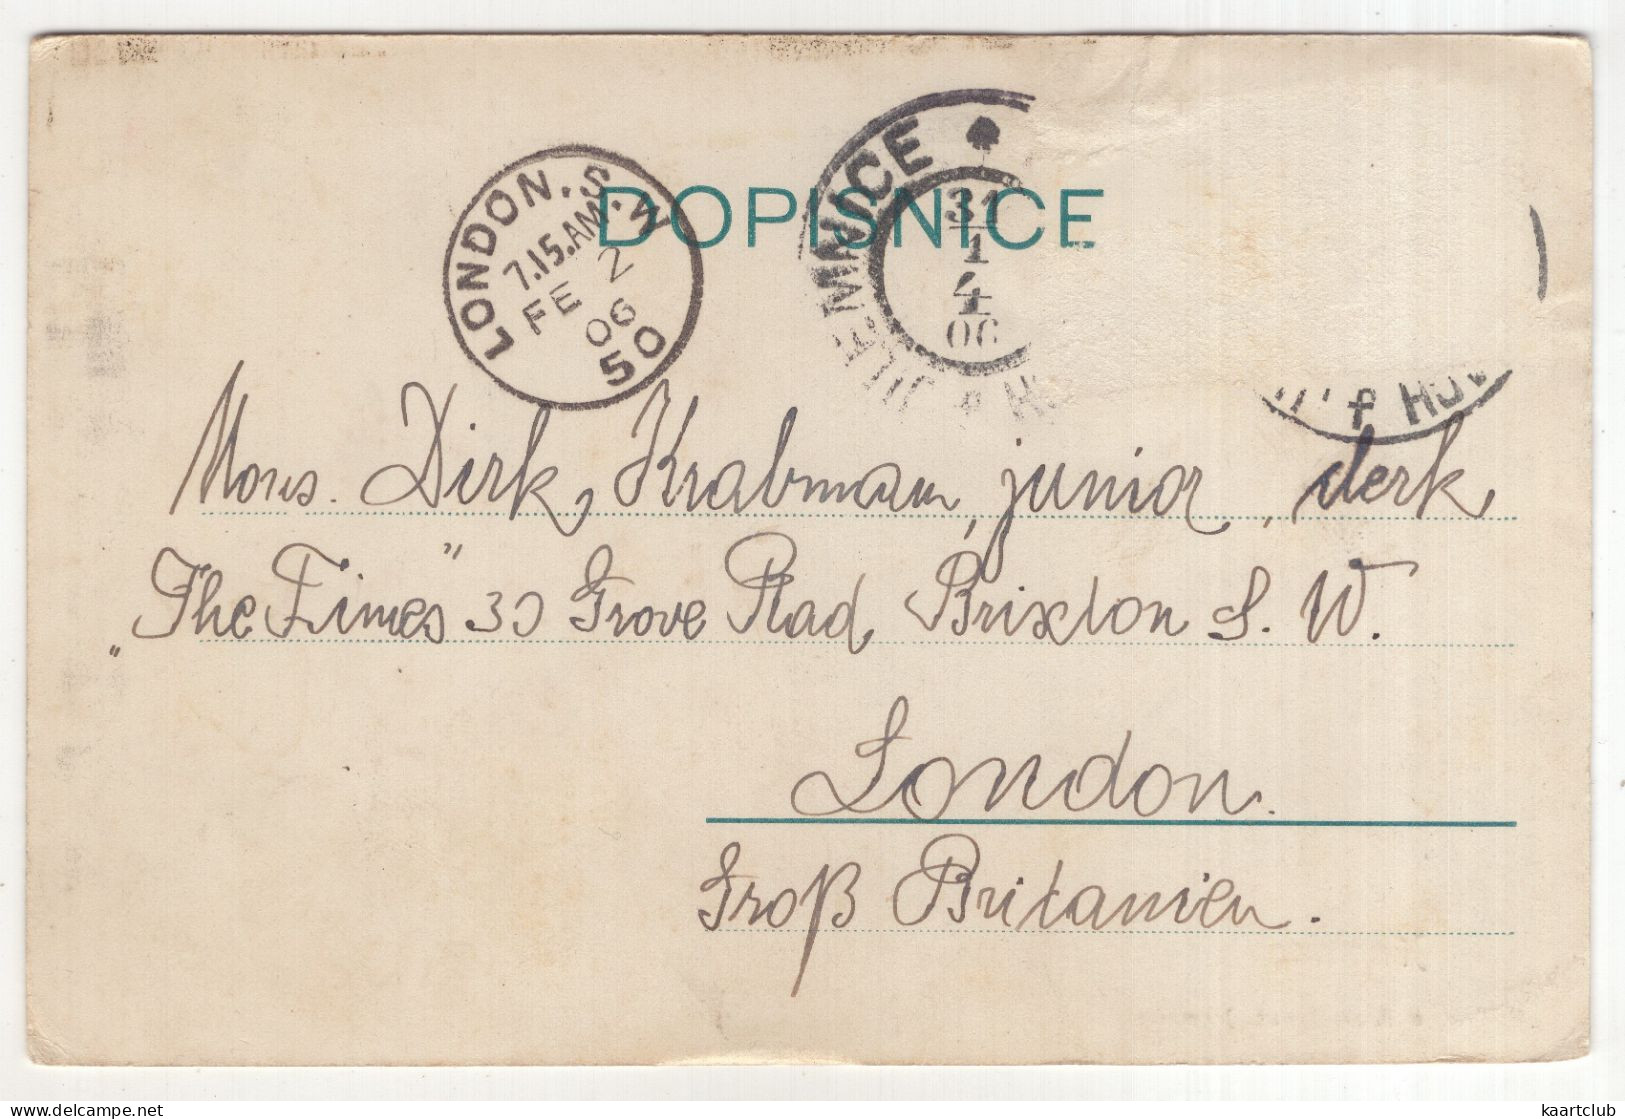 DOPISNICE
LONDON. S.W
7.15.AM
FE 2
06
50
JILEMNICE
31
1
4
06
Mons. Dirk Krabman, junior, clerk
„The Times" 30 Grove Road, Brixton S. W.
London.
Groß Britanien.
kaartclub